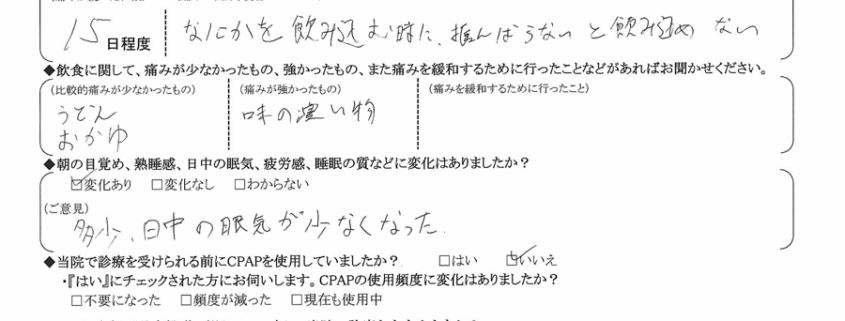 15日程度 なにかを飲み込む時に、踏んばらないと飲み込めない
◆飲食に関して、痛みが少なかったもの、強かったもの、また痛みを緩和するために行ったことなどがあればお聞かせください。
(比較的痛みが少なかったもの) (痛みが強かったもの) (痛みを緩和するために行ったこと)
うどん 味の濃い物
おかゆ
◆朝の目覚め、熟睡感、日中の眠気、疲労感、睡眠の質などに変化はありましたか?
☑変化あり □変化なし □わからない
(ご意見)
多少、日中の眠気が少なくなった.
◆当院で診療を受けられる前にCPAPを使用していましたか? □はい ☑いいえ
・『はい』にチェックされた方にお伺いします。CPAPの使用頻度に変化はありましたか?
□不要になった □頻度が減った □現在も使用中